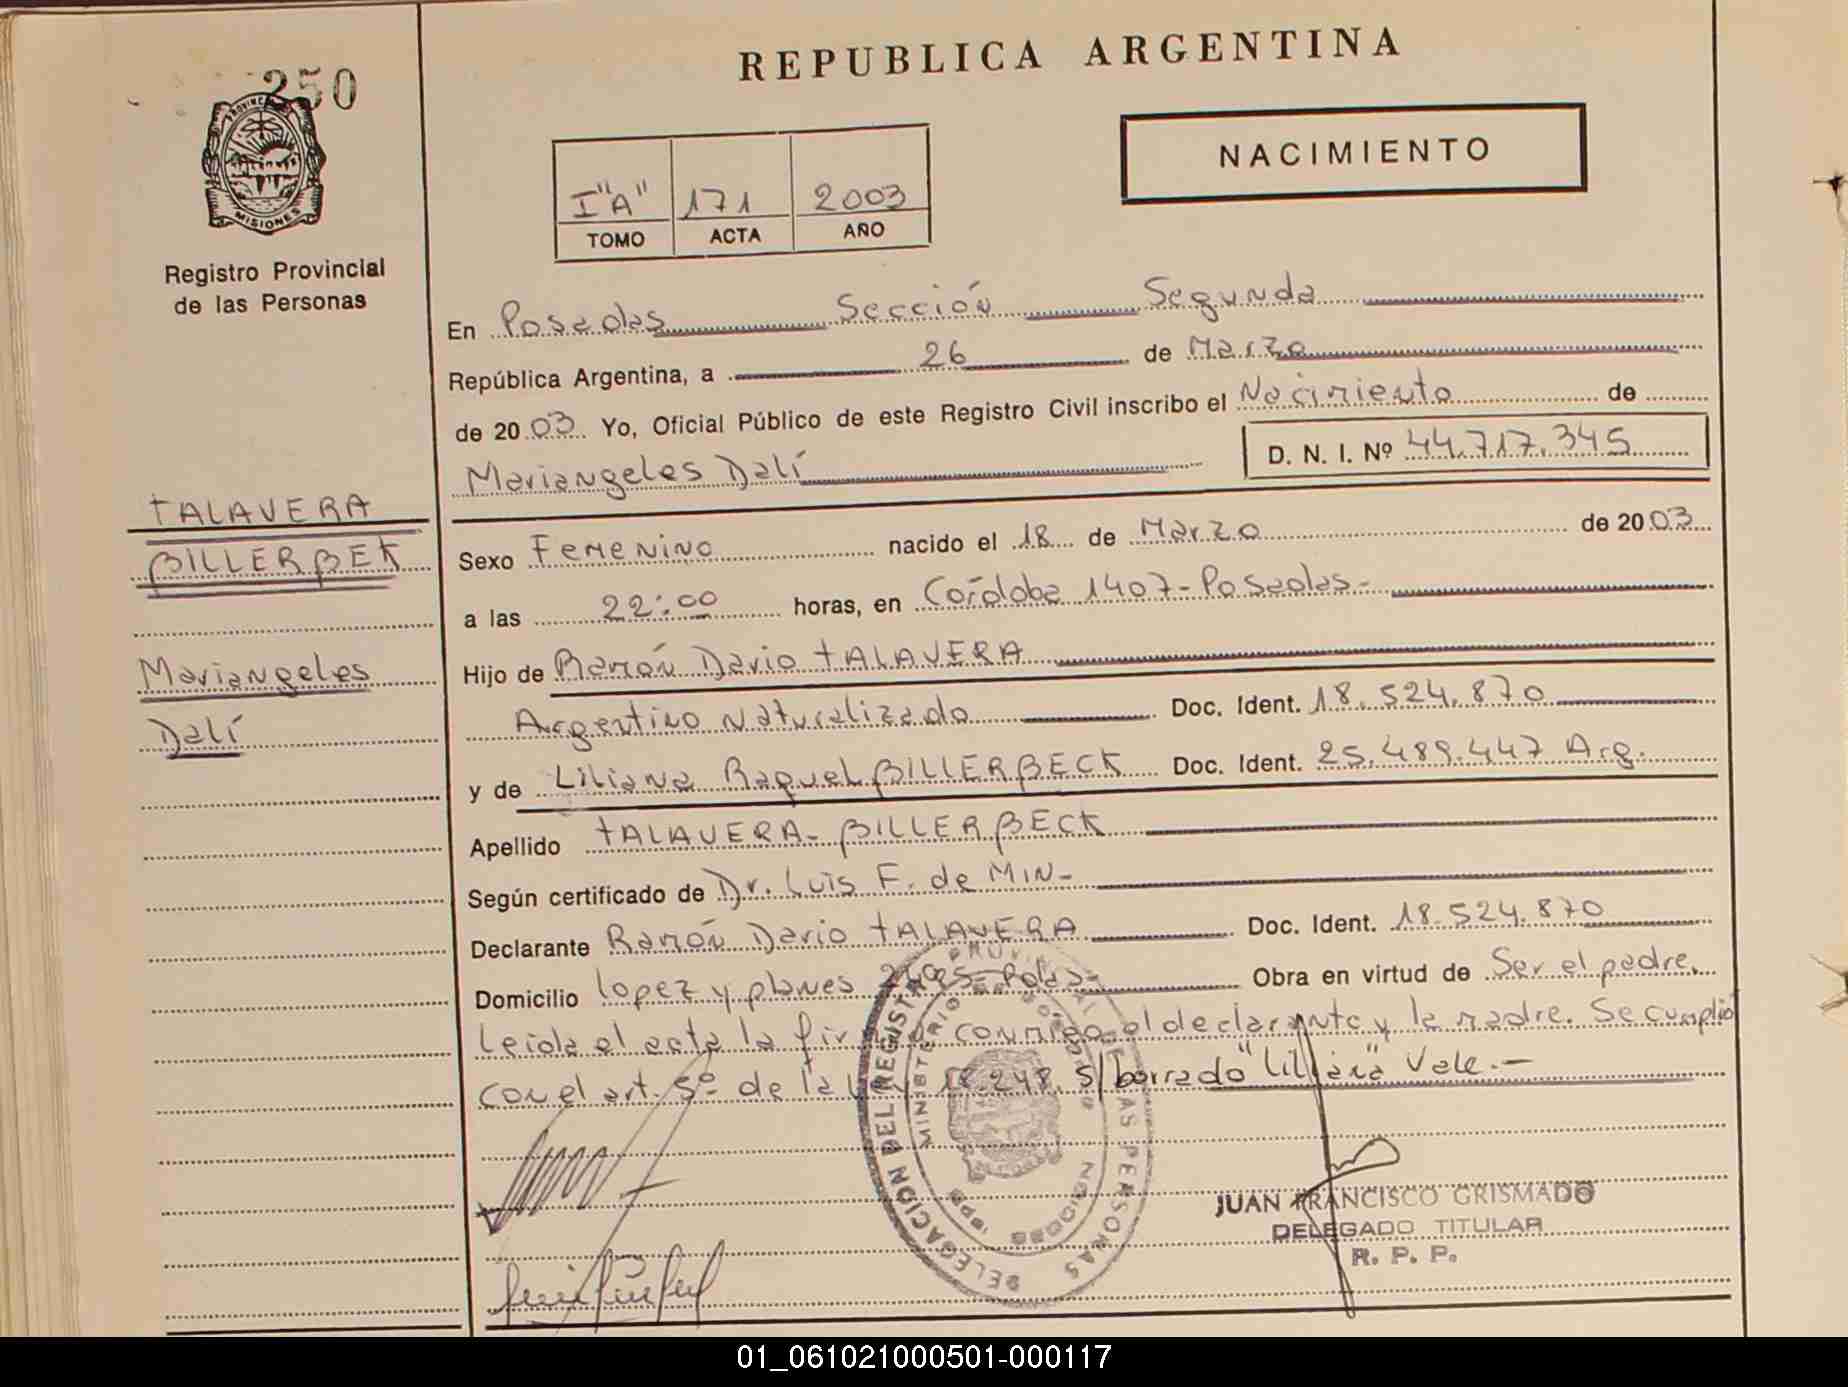 250
PROVINCIA
MISIONES
Registro Provincial
de las Personas
TALAVERA
BILLERBEK
Mariangeles
Dalí
REPUBLICA ARGENTINA
NACIMIENTO
I"A" 171 2003
TOMO ACTA AÑO
En Posadas Sección Segunda
República Argentina, a 26 de Marzo
de 2003 Yo, Oficial Público de este Registro Civil inscribo el Nacimiento de
Mariangeles Dalí D. N. I. Nº 44.717.345
Sexo Femenino nacido el 18 de Marzo de 2003
a las 22:00 horas, en Córdoba 1407-Posadas-
Hijo de Ramón Dario TALAVERA
Argentino Naturalizado Doc. Ident. 18.524.870
y de Liliana Raquel BILLERBECK Doc. Ident. 25.489.447 Arg.
Apellido TALAVERA-BILLERBECK
Según certificado de Dr. Luis F. de MIN-
Declarante Ramón Dario TALAVERA Doc. Ident. 18.524.870
Domicilio Lopez y planes Pdas- Obra en virtud de Ser el padre.
Leida el acta la conmigo el declarante y la madre. Se cumplió
con el art. 5º de la 18.248. S/borrado "Liliana" Vale.-
DELEGACION DEL REGISTRO PROVINCIAL DE LAS PERSONAS
MINISTERIO DE GOBIERNO
MISIONES
JUAN FRANCISCO GRISMADO
DELEGADO TITULAR
R. P. P.
01_061021000501-000117